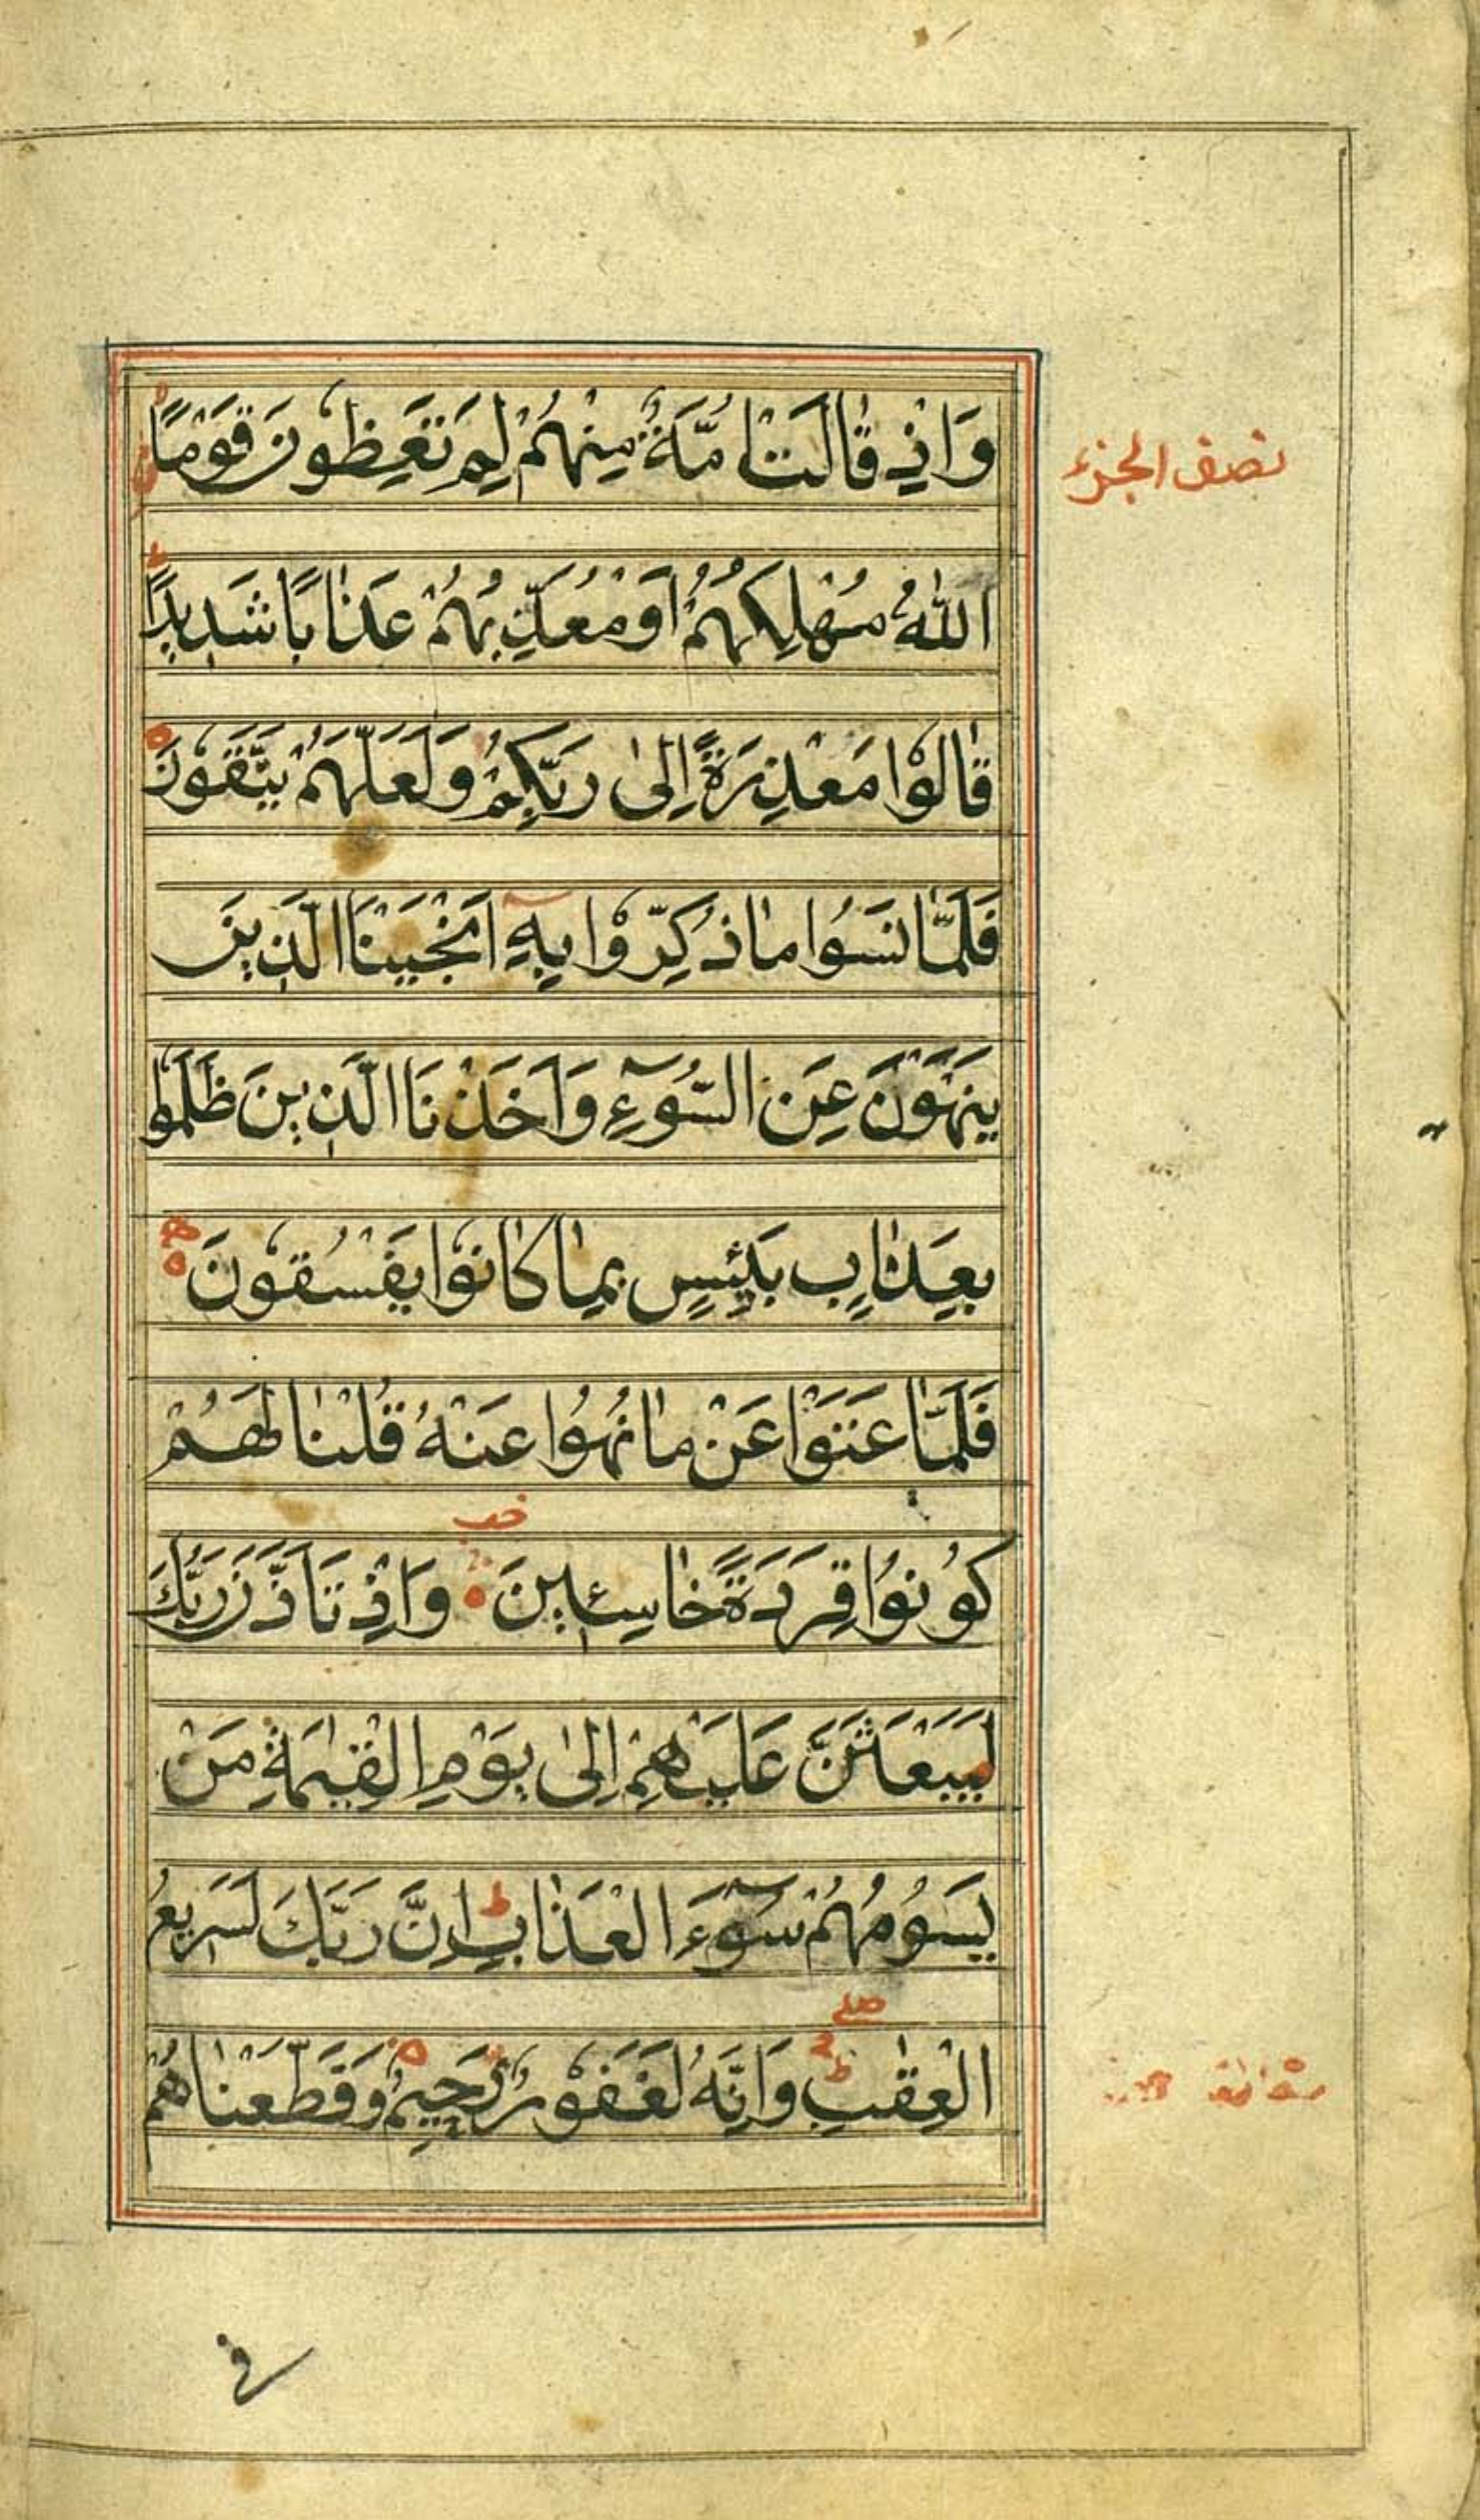 وَاِذْ قَالَتْ اُمَّةٌ مِنْهُمْ لِمَ تَعِظُونَ قَوْمًا
نصف الجزء
اللّٰهُ مُهْلِكُهُمْ اَوْ مُعَذِّبُهُمْ عَذَابًا شَدِيدًا
قَالُوْا مَعْذِرَةً اِلىٰ رَبِّكُمْ وَلَعَلَّهُمْ يَتَّقُونَ
فَلَمَّا نَسُوا مَا ذُكِّرُوْا بِهِ اَنْجَيْنَا الَّذِينَ
يَنْهَوْنَ عَنِ السُّوۤءِ وَاَخَذْنَا الَّذِينَ ظَلَمُوا
بِعَذَابٍ بَئِيسٍ بِمَا كَانُوْا يَفْسُقُوْنَ
فَلَمَّا عَتَوْا عَنْ مَا نُهُوْا عَنْهُ قُلْنَا لَهُمْ
كُوْنُوْا قِرَدَةً خَاسِئِينَ وَاِذْ تَاَذَّنَ رَبُّكَ
لَيَبْعَثَنَّ عَلَيْهِمْ اِلىٰ يَوْمِ الْقِيٰمَةِ مَنْ
يَسُوْمُهُمْ سُوۤءَ الْعَذَابِ ط اِنَّ رَبَّكَ لَسَرِيعُ
صلے
الْعِقٰبِ وَاِنَّهُ لَغَفُوْرٌ رَحِيْمٌ وَقَطَّعْنَاهُمْ
فى